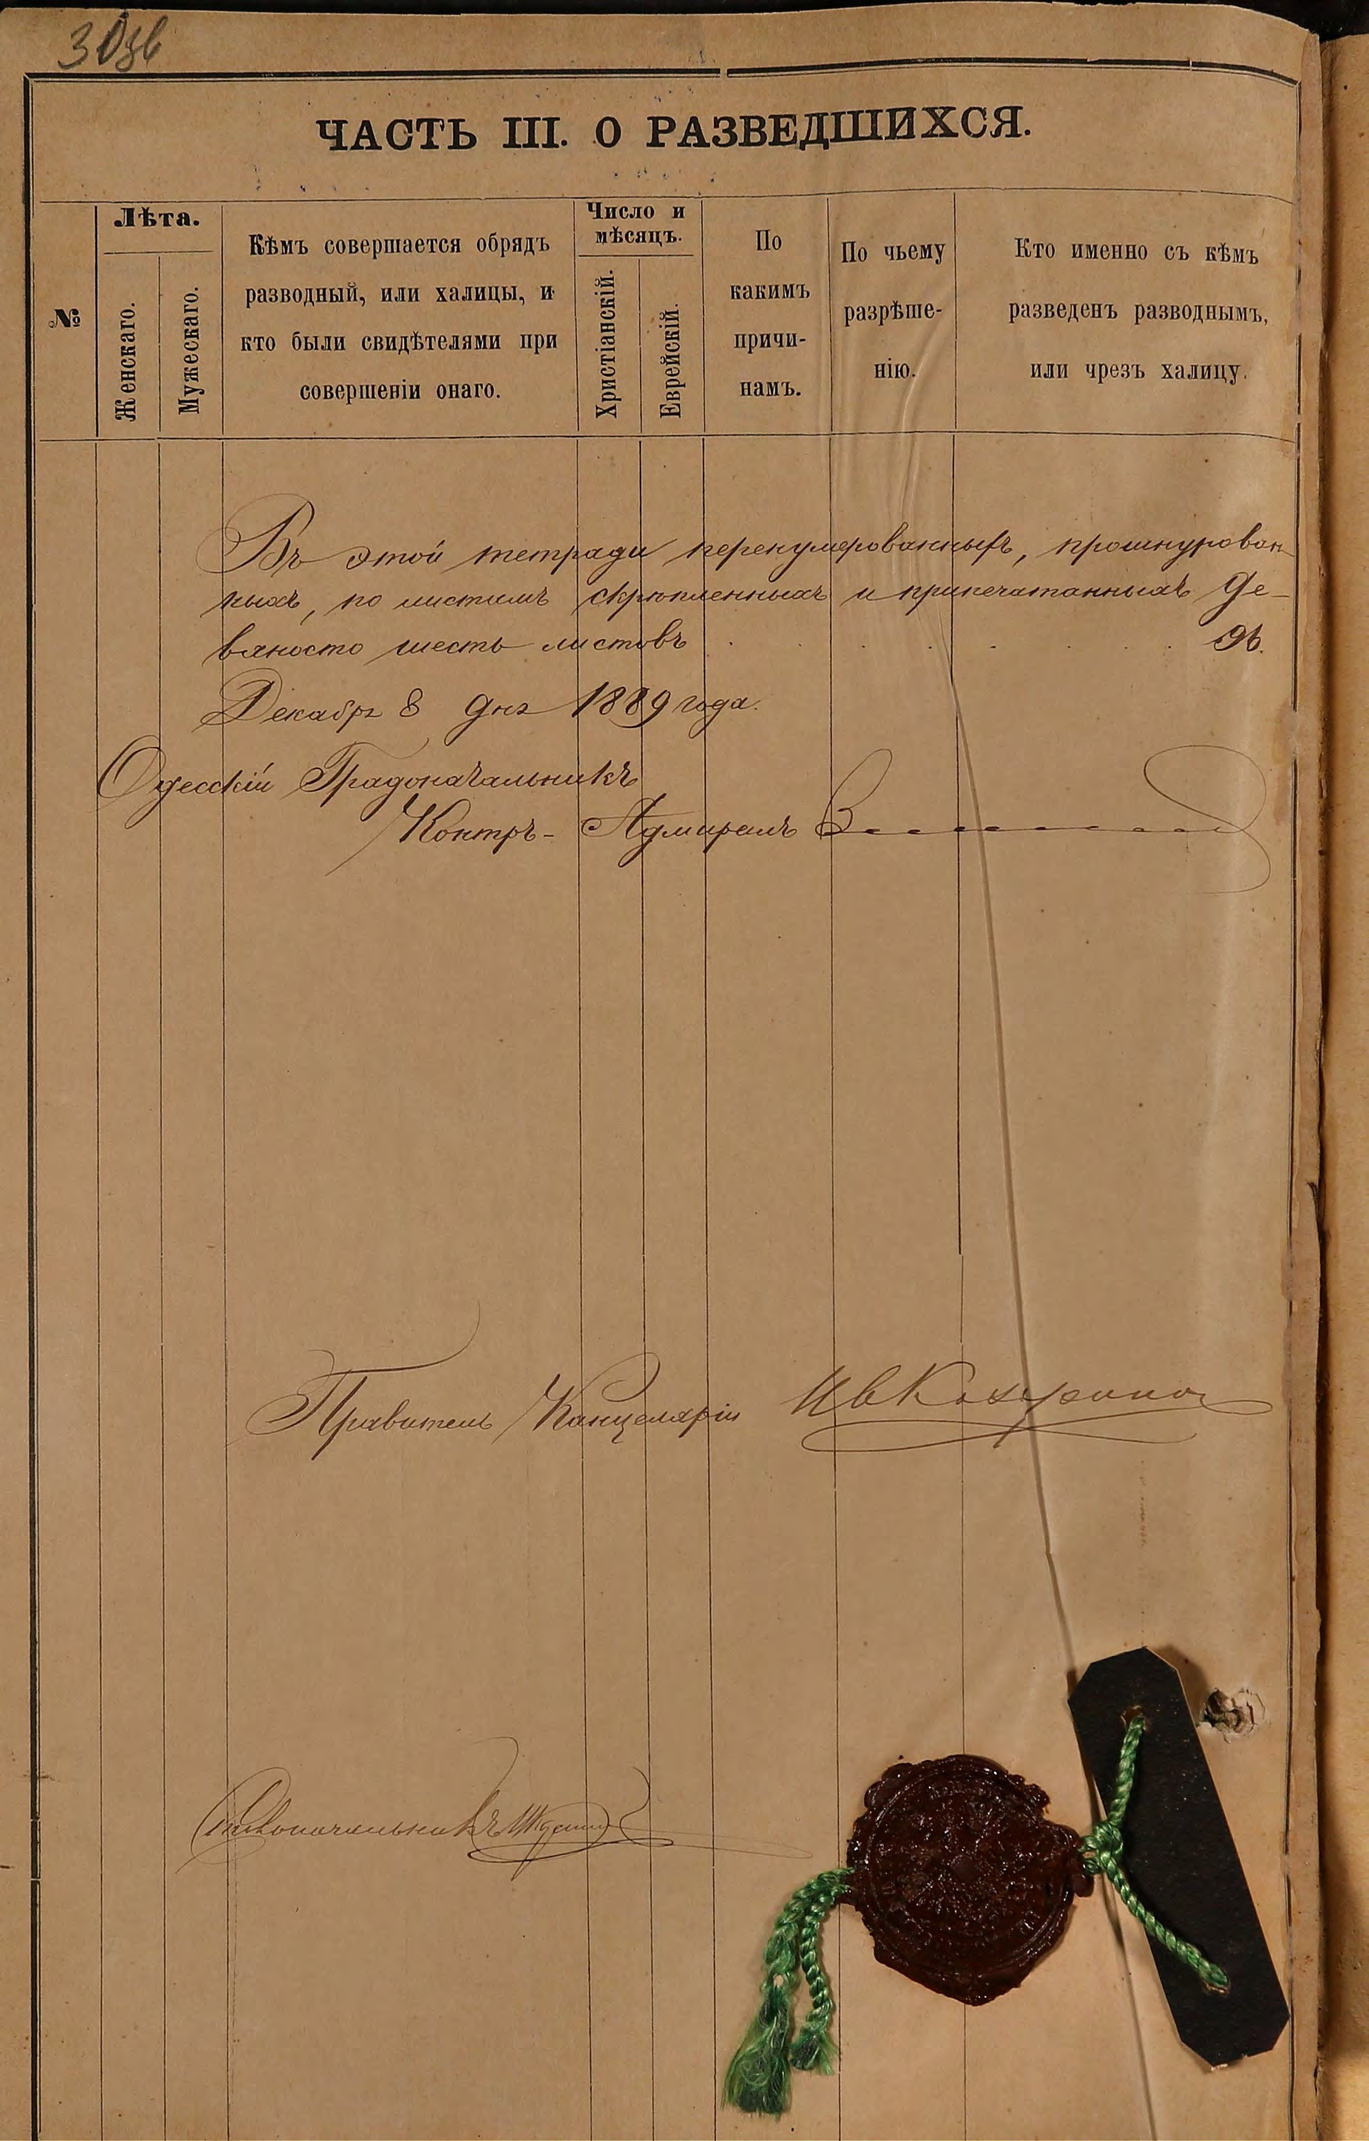 ЧАСТЬ III. О РАЗВЕДШИХСЯ.
№
Лѣта.
Женскаго.
Мужескаго.
Кѣмъ совершается обрядъ
разводный, или халицы, и
кто были свидѣтелями при
совершеніи онаго.
Число и
мѣсяцъ.
Христіанскій.
Еврейскій.
По
какимъ
причи-
намъ.
По чьему
разрѣше-
нію.
Кто именно съ кѣмъ
разведенъ разводнымъ,
или чрезъ халицу.
Въ этой тетради перенумерованныхъ, прошнурован
ныхъ, по листамъ скрѣпленныхъ и припечатанныхъ де-
вяносто шесть листовъ . . . . . . . 96.
Декабря 8 дня 1889 года.
Одесскій Градоначальникъ
Контръ-Адмиралъ
Правитель Канцеляріи
Столоначальникъ